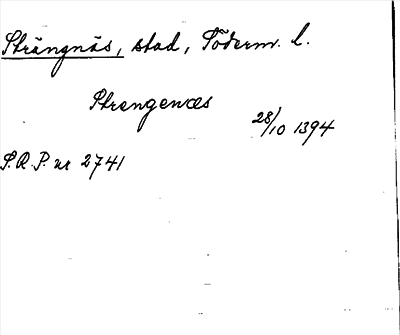 Strängnäs, stad, Söderm. l.
Strengenæs
28/10 1394
S.R.P. nr 2741